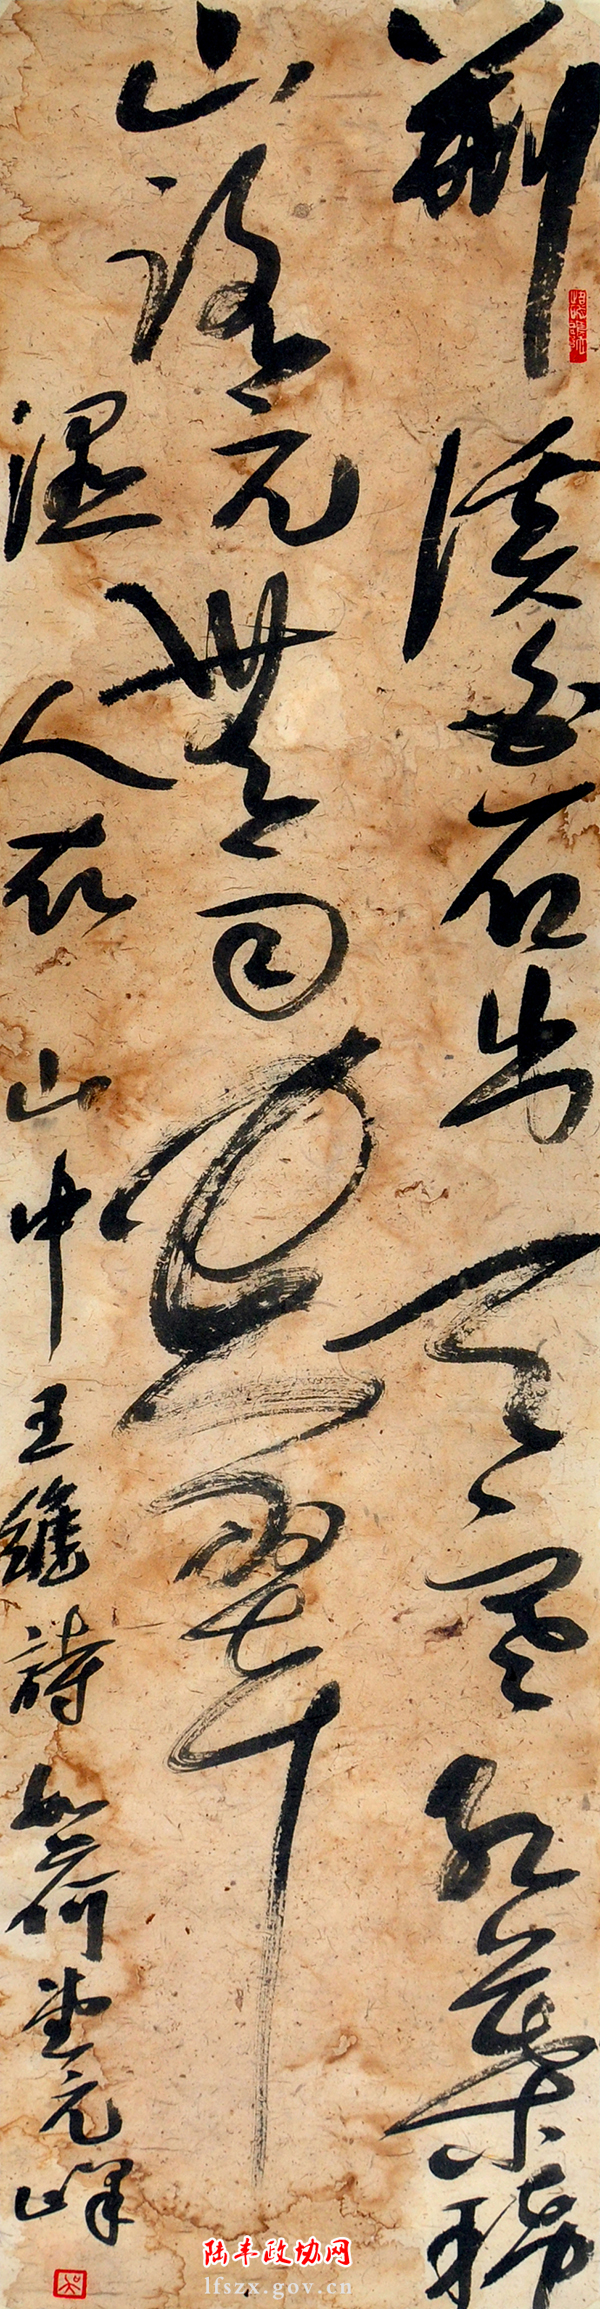 荆溪白石出天寒紅葉稀
山路元無雨空翠
濕人衣 山中 王維詩 如荷堂元峰
陆丰政协网
lfszx.gov.cn